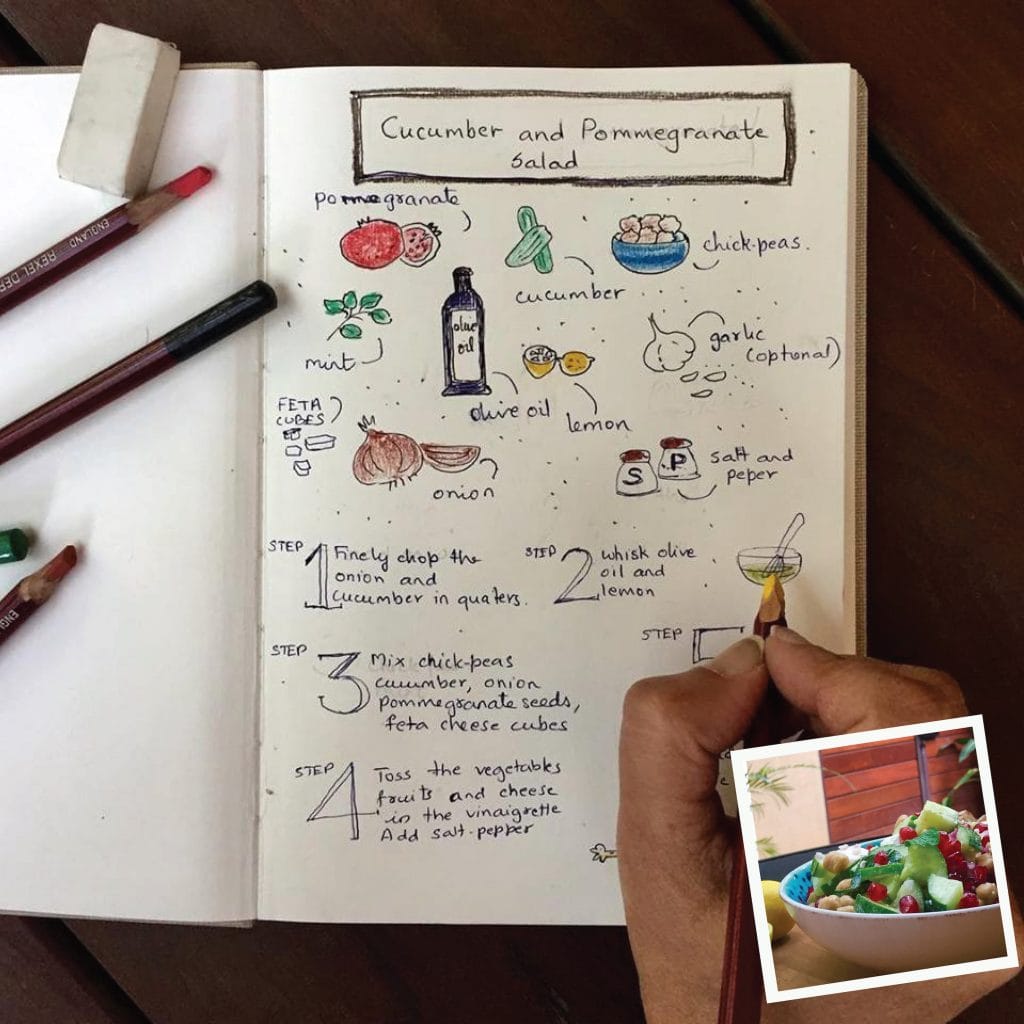 Cucumber and Pommegranate
Salad
pommegranate
chick-peas.
cucumber
mint
olive
oil
olive oil
lemon
garlic
(optional)
FETA
CUBES
onion
S
P
salt and
peper
STEP 1
Finely chop the
onion and
cucumber in quaters.
STEP 2
whisk olive
oil and
lemon
STEP 3
Mix chick-peas
cucumber, onion
pommegranate seeds,
feta cheese cubes
STEP
STEP 4
Toss the vegetables
fruits and cheese
in the vinaigrette
Add salt-pepper
ENGLAND
REXEL DER
ENG